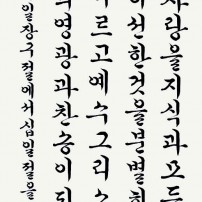 사랑을지식과모든
선한것을분별하
르고예수그리스
영광과찬송이되
일장구절에서십일절을